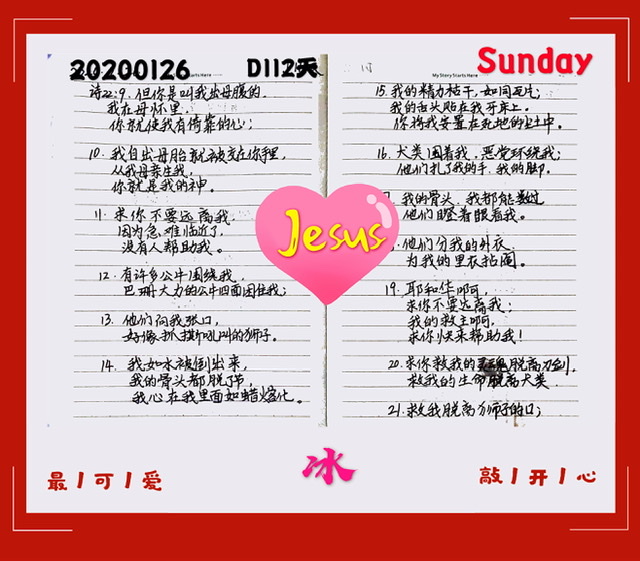 20200126
D112天
Sunday
My Story Starts Here
诗22:9. 但你是叫我出母腹的,
我在母怀里,
你就使我有倚靠的心;
10. 我自出母胎就被交在你手里,
从我母亲生我,
你就是我的神。
11. 求你不要远离我,
因为急难临近了,
没有人帮助我。
12. 有许多公牛围绕我,
巴珊大力的公牛四面困住我;
13. 他们向我张口,
好像抓撕吼叫的狮子。
14. 我如水被倒出来,
我的骨头都脱了节,
我心在我里面如蜡熔化。
15. 我的精力枯干,如同瓦片;
我的舌头贴在我牙床上。
你将我安置在死地的尘土中。
16. 犬类围着我,恶党环绕我;
他们扎了我的手、我的脚。
我的骨头,我都能数过
他们瞪着眼看我。
他们分我的外衣,
为我的里衣拈阄。
19. 耶和华啊,
求你不要远离我;
我的救主啊,
求你快来帮助我!
20. 求你救我的灵魂脱离刀剑,
救我的生命脱离犬类.
21. 救我脱离狮子的口;
Jesus
冰
最/可/爱
敲/开/心